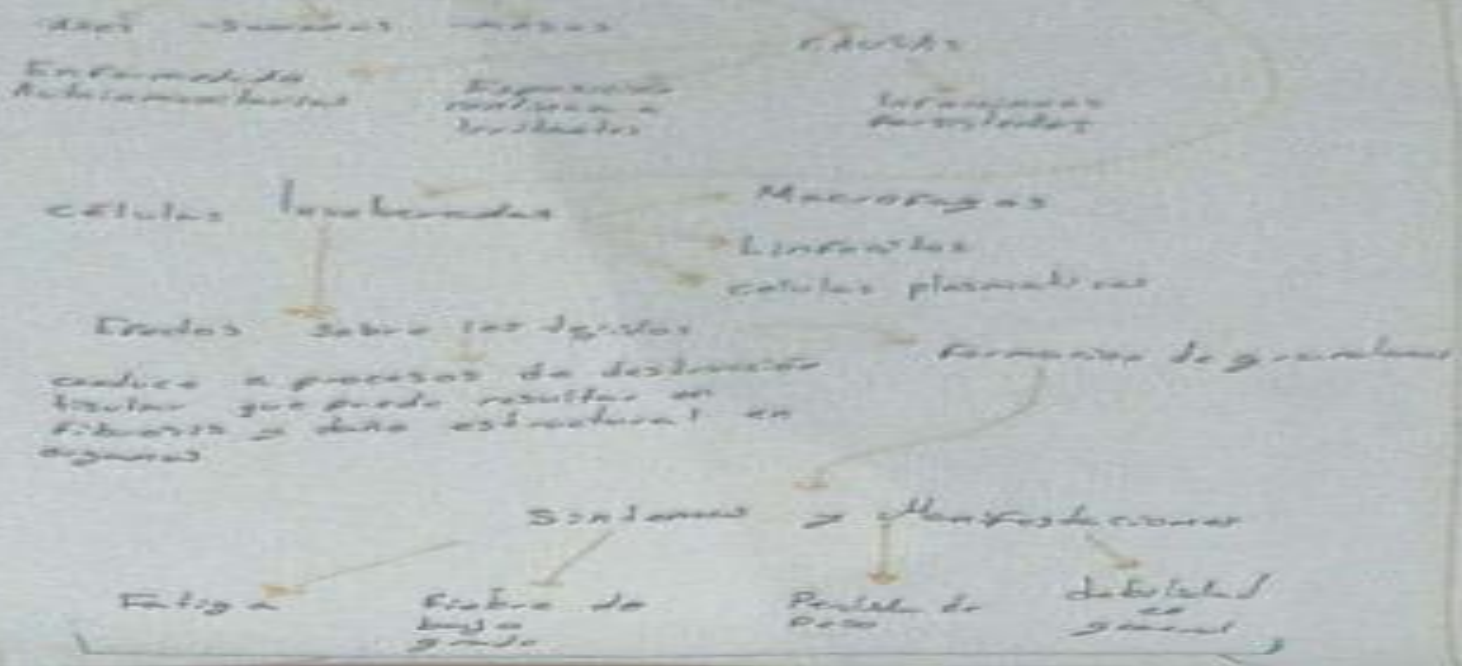 Semanas Meses
CAUSAS
Enfermedades
Autoinmunitarias
Exposición
continua a
Irritantes
Infecciones
Persistentes
células Involucradas
Macrofagos
Linfocitos
celulas plasmaticas
sobre los tejidos
Formacion de granulomas
conduce a procesos de destrucción
tisular que puede resultar en
Fibrosis y daño estructural en
organos
Sintomas y Manifestaciones
Fatiga
Fiebre de
bajo
grado
Perdida de
Peso
debilidad
en
general